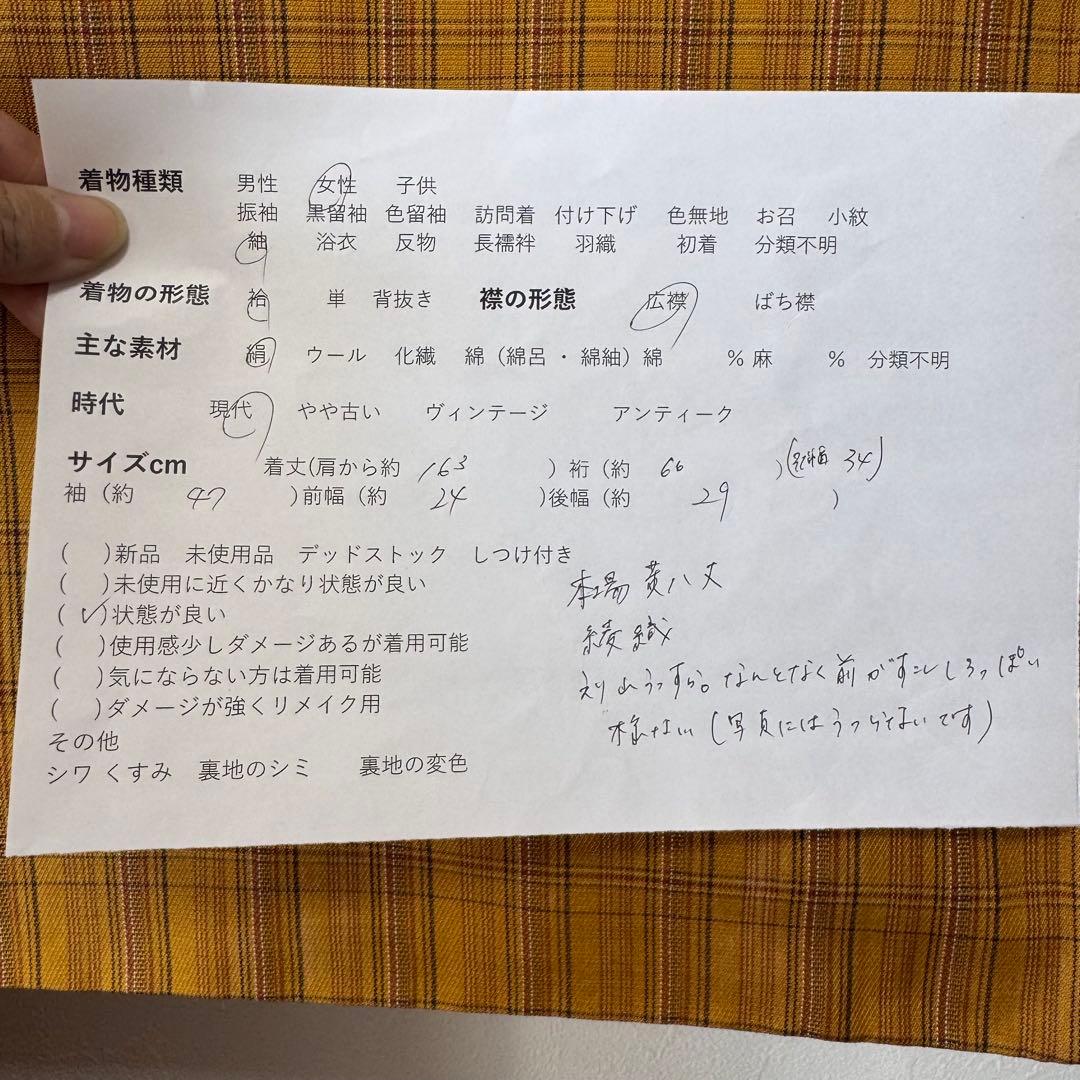 着物種類 男性 女性 子供
振袖 黒留袖 色留袖 訪問着 付け下げ 色無地 お召 小紋
紬 浴衣 反物 長襦袢 羽織 初着 分類不明
着物の形態 袷 単 背抜き 襟の形態 広襟 ばち襟
主な素材 絹 ウール 化繊 綿（綿呂・綿紬）綿 % 麻 % 分類不明
時代 現代 やや古い ヴィンテージ アンティーク
サイズcm 着丈(肩から約 163 ) 裄（約 66 ) ( 34)
袖（約 47 )前幅（約 24 )後幅（約 29 )
( )新品 未使用品 デッドストック しつけ付き
( )未使用に近くかなり状態が良い
(✓)状態が良い
( )使用感少しダメージあるが着用可能
( )気にならない方は着用可能
( )ダメージが強くリメイク用
その他
シワ くすみ 裏地のシミ 裏地の変色
本場黄八丈
綾織
うっすら。なんとなく前がすこししろっぽい
(写真にはうつらないです)